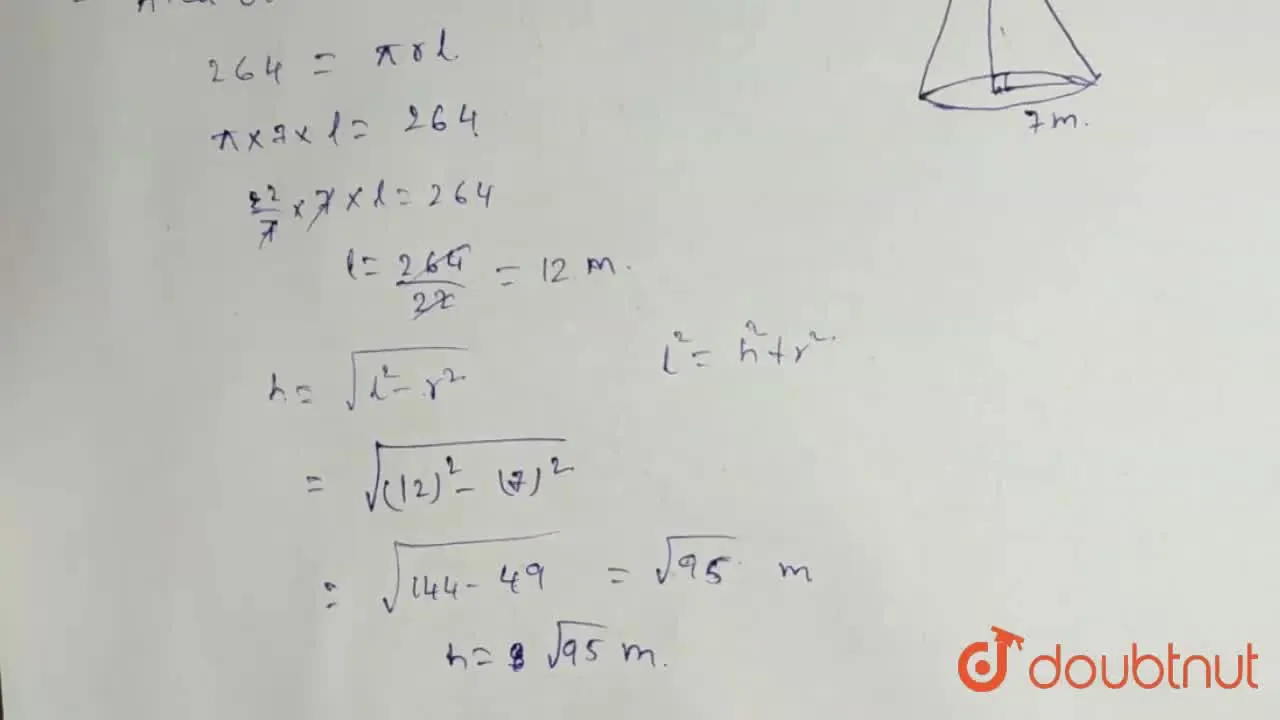 264 = πrl.
7 m.
π×7×l = 264
22/7 × 7 × l = 264
l = 264/22 = 12 m.
h = √(l² - r²)
l² = h² + r².
= √((12)² - (7)²)
= √(144 - 49) = √95 m
h = √95 m.
doubtnut